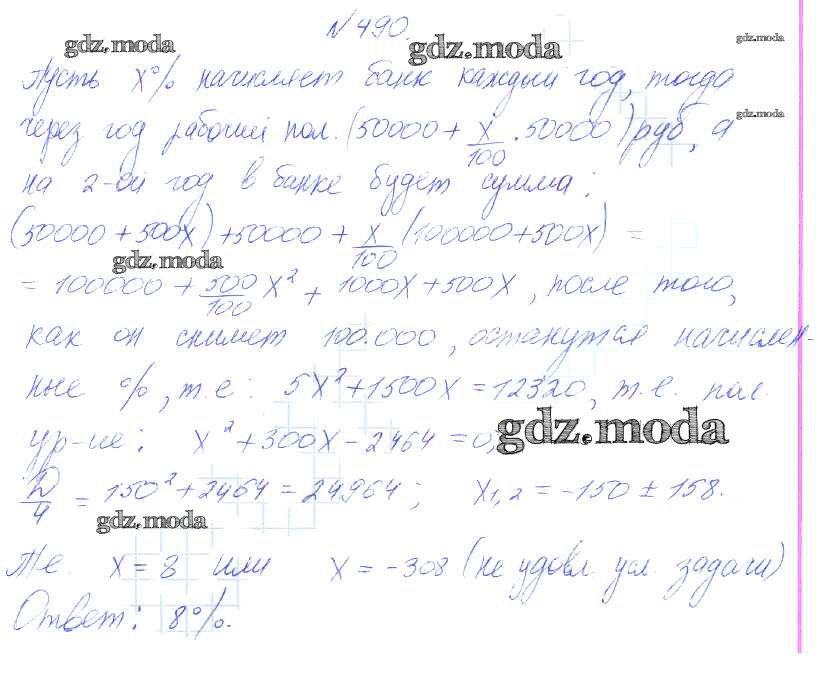 №490.
gdz.moda gdz.moda gdz.moda
Пусть x% начисляет банк каждый год, тогда
gdz.moda
через год рабочий пол. (50000 + x/100 · 50000) руб, а
на 2-ой год в банке будет сумма:
(50000 + 500x) + 50000 + x/100 (100000 + 500x) =
gdz.moda
= 100000 + 500/100 x² + 1000x + 500x, после того,
как он снимет 100.000, останутся начислен-
ные %, т.е: 5x² + 1500x = 12320, т.е. пол.
ур-ие: x² + 300x - 2464 = 0,
gdz.moda
D/4 = 150² + 2464 = 24964; x1,2 = -150 ± 158.
gdz.moda
Те. x = 8 или x = -308 (не удовл. усл. задачи)
Ответ: 8%.